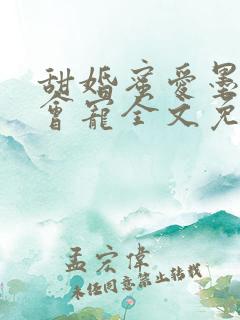 甜婚蜜爱墨
会宠全文免
孟宏伟
未经同意禁止转载